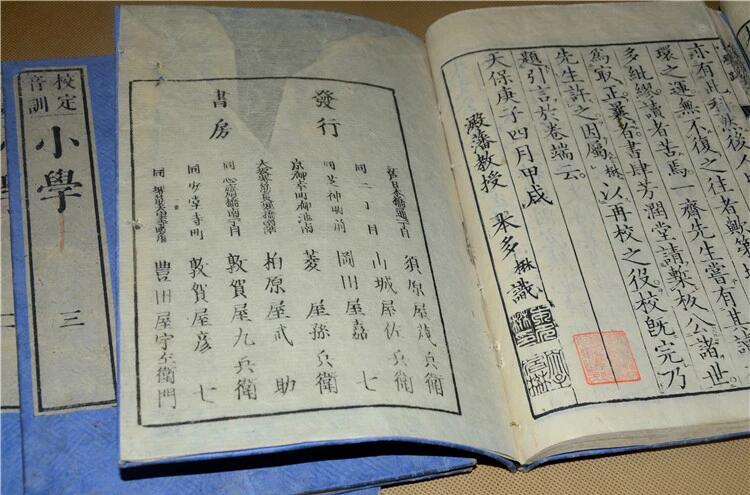 亦有此刻然後
環之運無不復之往者歟
多紕繆讀者苦焉一齋先生嘗有其
爲㝡正曩者書肆芳潤堂請　板公諸世
先生許之因屬楙以再校之役校既完乃
題引言於卷端云
天保庚子四月甲戌
澱藩教授　　楙識
發行
書房
日本橋通　丁目　須原屋茂兵衛
同二丁目　山城屋佐兵衛
同芝神明前　岡田屋嘉七
京御幸町御池南　菱屋孫兵衛
大　　　　　　　柏原屋武助
同心斎橋南　丁目　敦賀屋九兵衛
同安堂寺町　敦賀屋彦七
同　　　　　　豊田屋宇左衛門
校定
音訓
小學
三